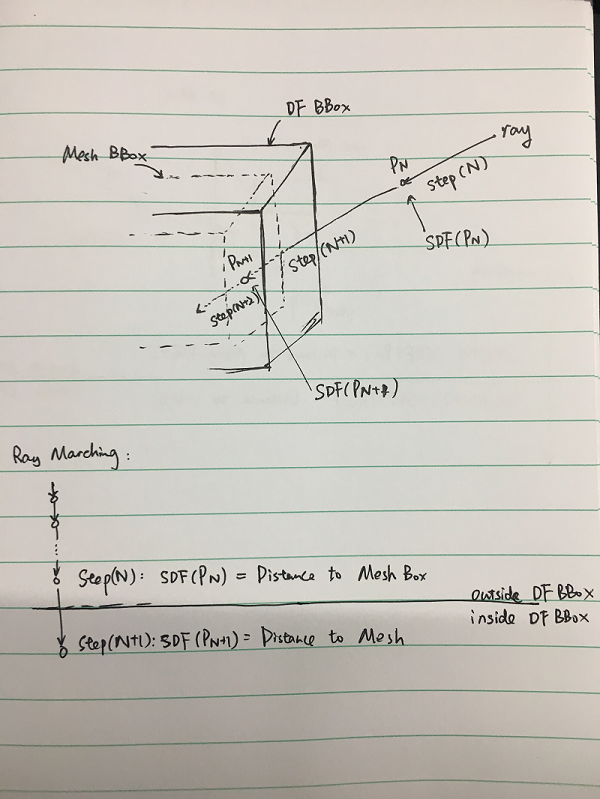 DF BBox
Mesh BBox
ray
PN
Step(N)
SDF(PN)
Step(N+1)
PN+1
Step(N+2)
Ray Marching:
Step(N): SDF(PN) = Distance to Mesh Box
outside DF BBox
inside DF BBox
Step(N+1): SDF(PN+1) = Distance to Mesh